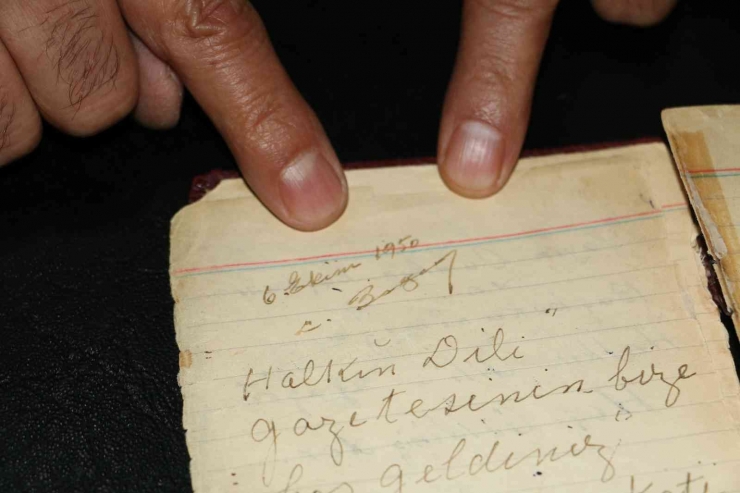 6 Ekim 1950
C. Bayar
Halkın Dili"
gazetesinin bize
hoş geldiniz"